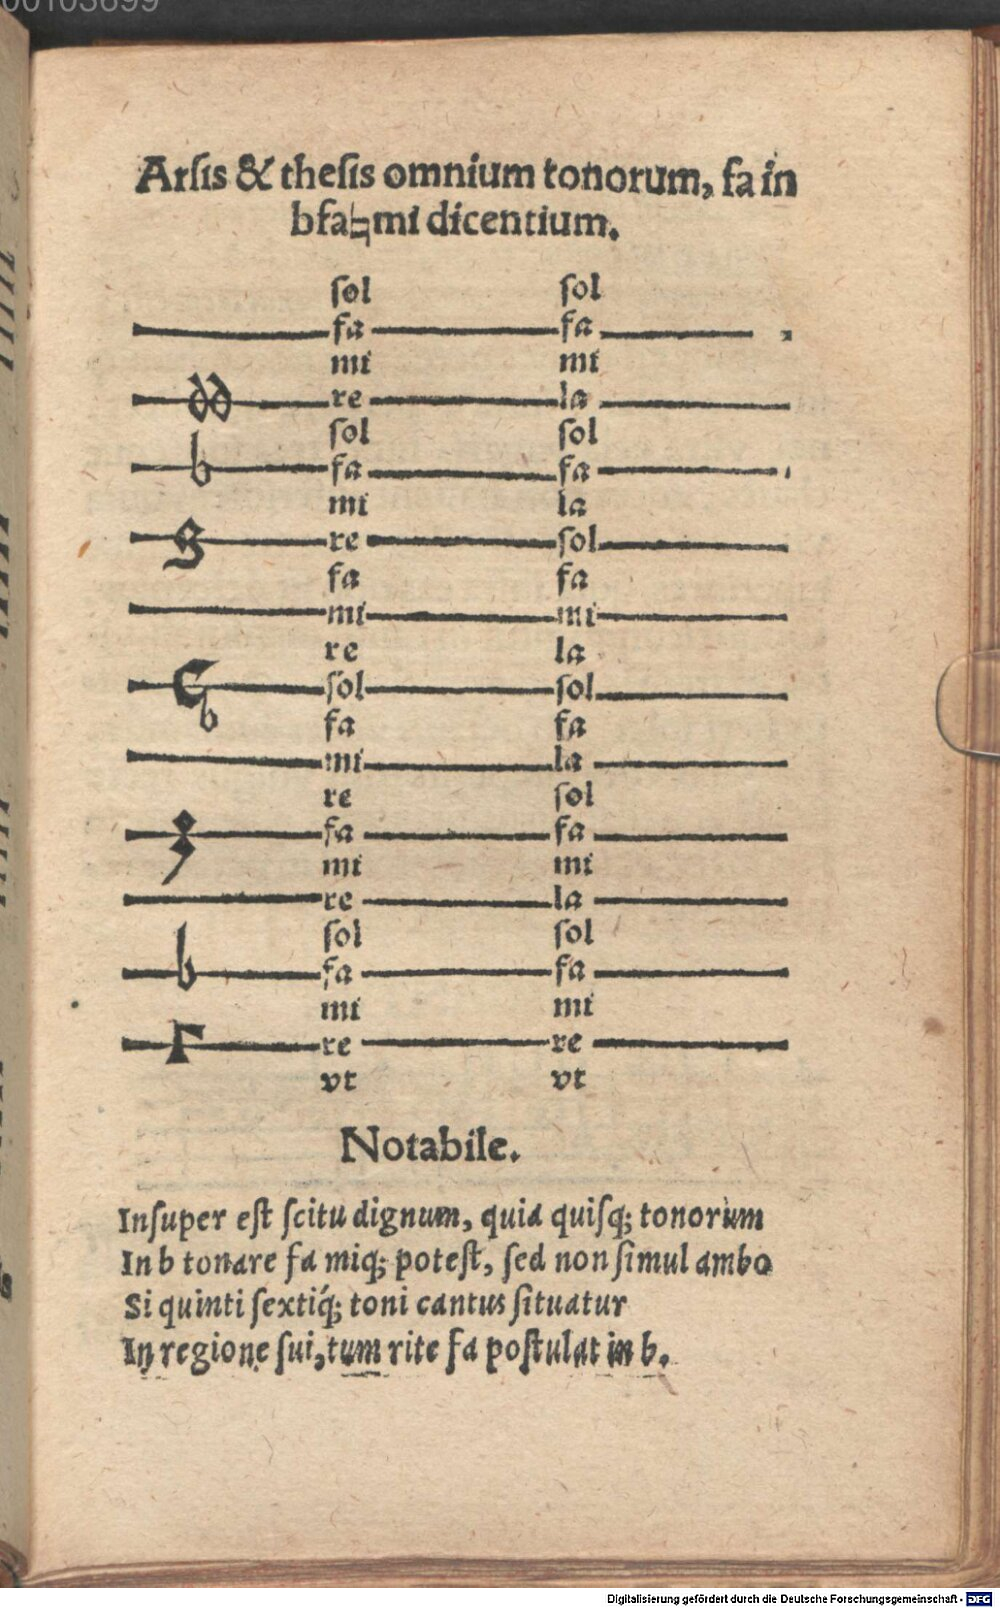 00103699
Arſis & theſis omnium tonorum, fa in
bfa♮mi dicentium.
ſol ſol
fa fa
mi mi
dd re la
ſol ſol
b fa fa
mi la
g re ſol
fa fa
mi mi
re la
C ſol ſol
b fa fa
mi la
re ſol
fa fa
mi mi
re la
ſol ſol
b fa fa
mi mi
Γ re re
vt vt
Notabile.
Inſuper eſt ſcitu dignum, quia quiſq; tonorum
In b tonare fa miq; poteſt, ſed non ſimul ambo
Si quinti ſextiq́; toni cantus ſituatur
In regione ſui, tum rite fa poſtulat in b.
Digitalisierung gefördert durch die Deutsche Forschungsgemeinschaft - DFG